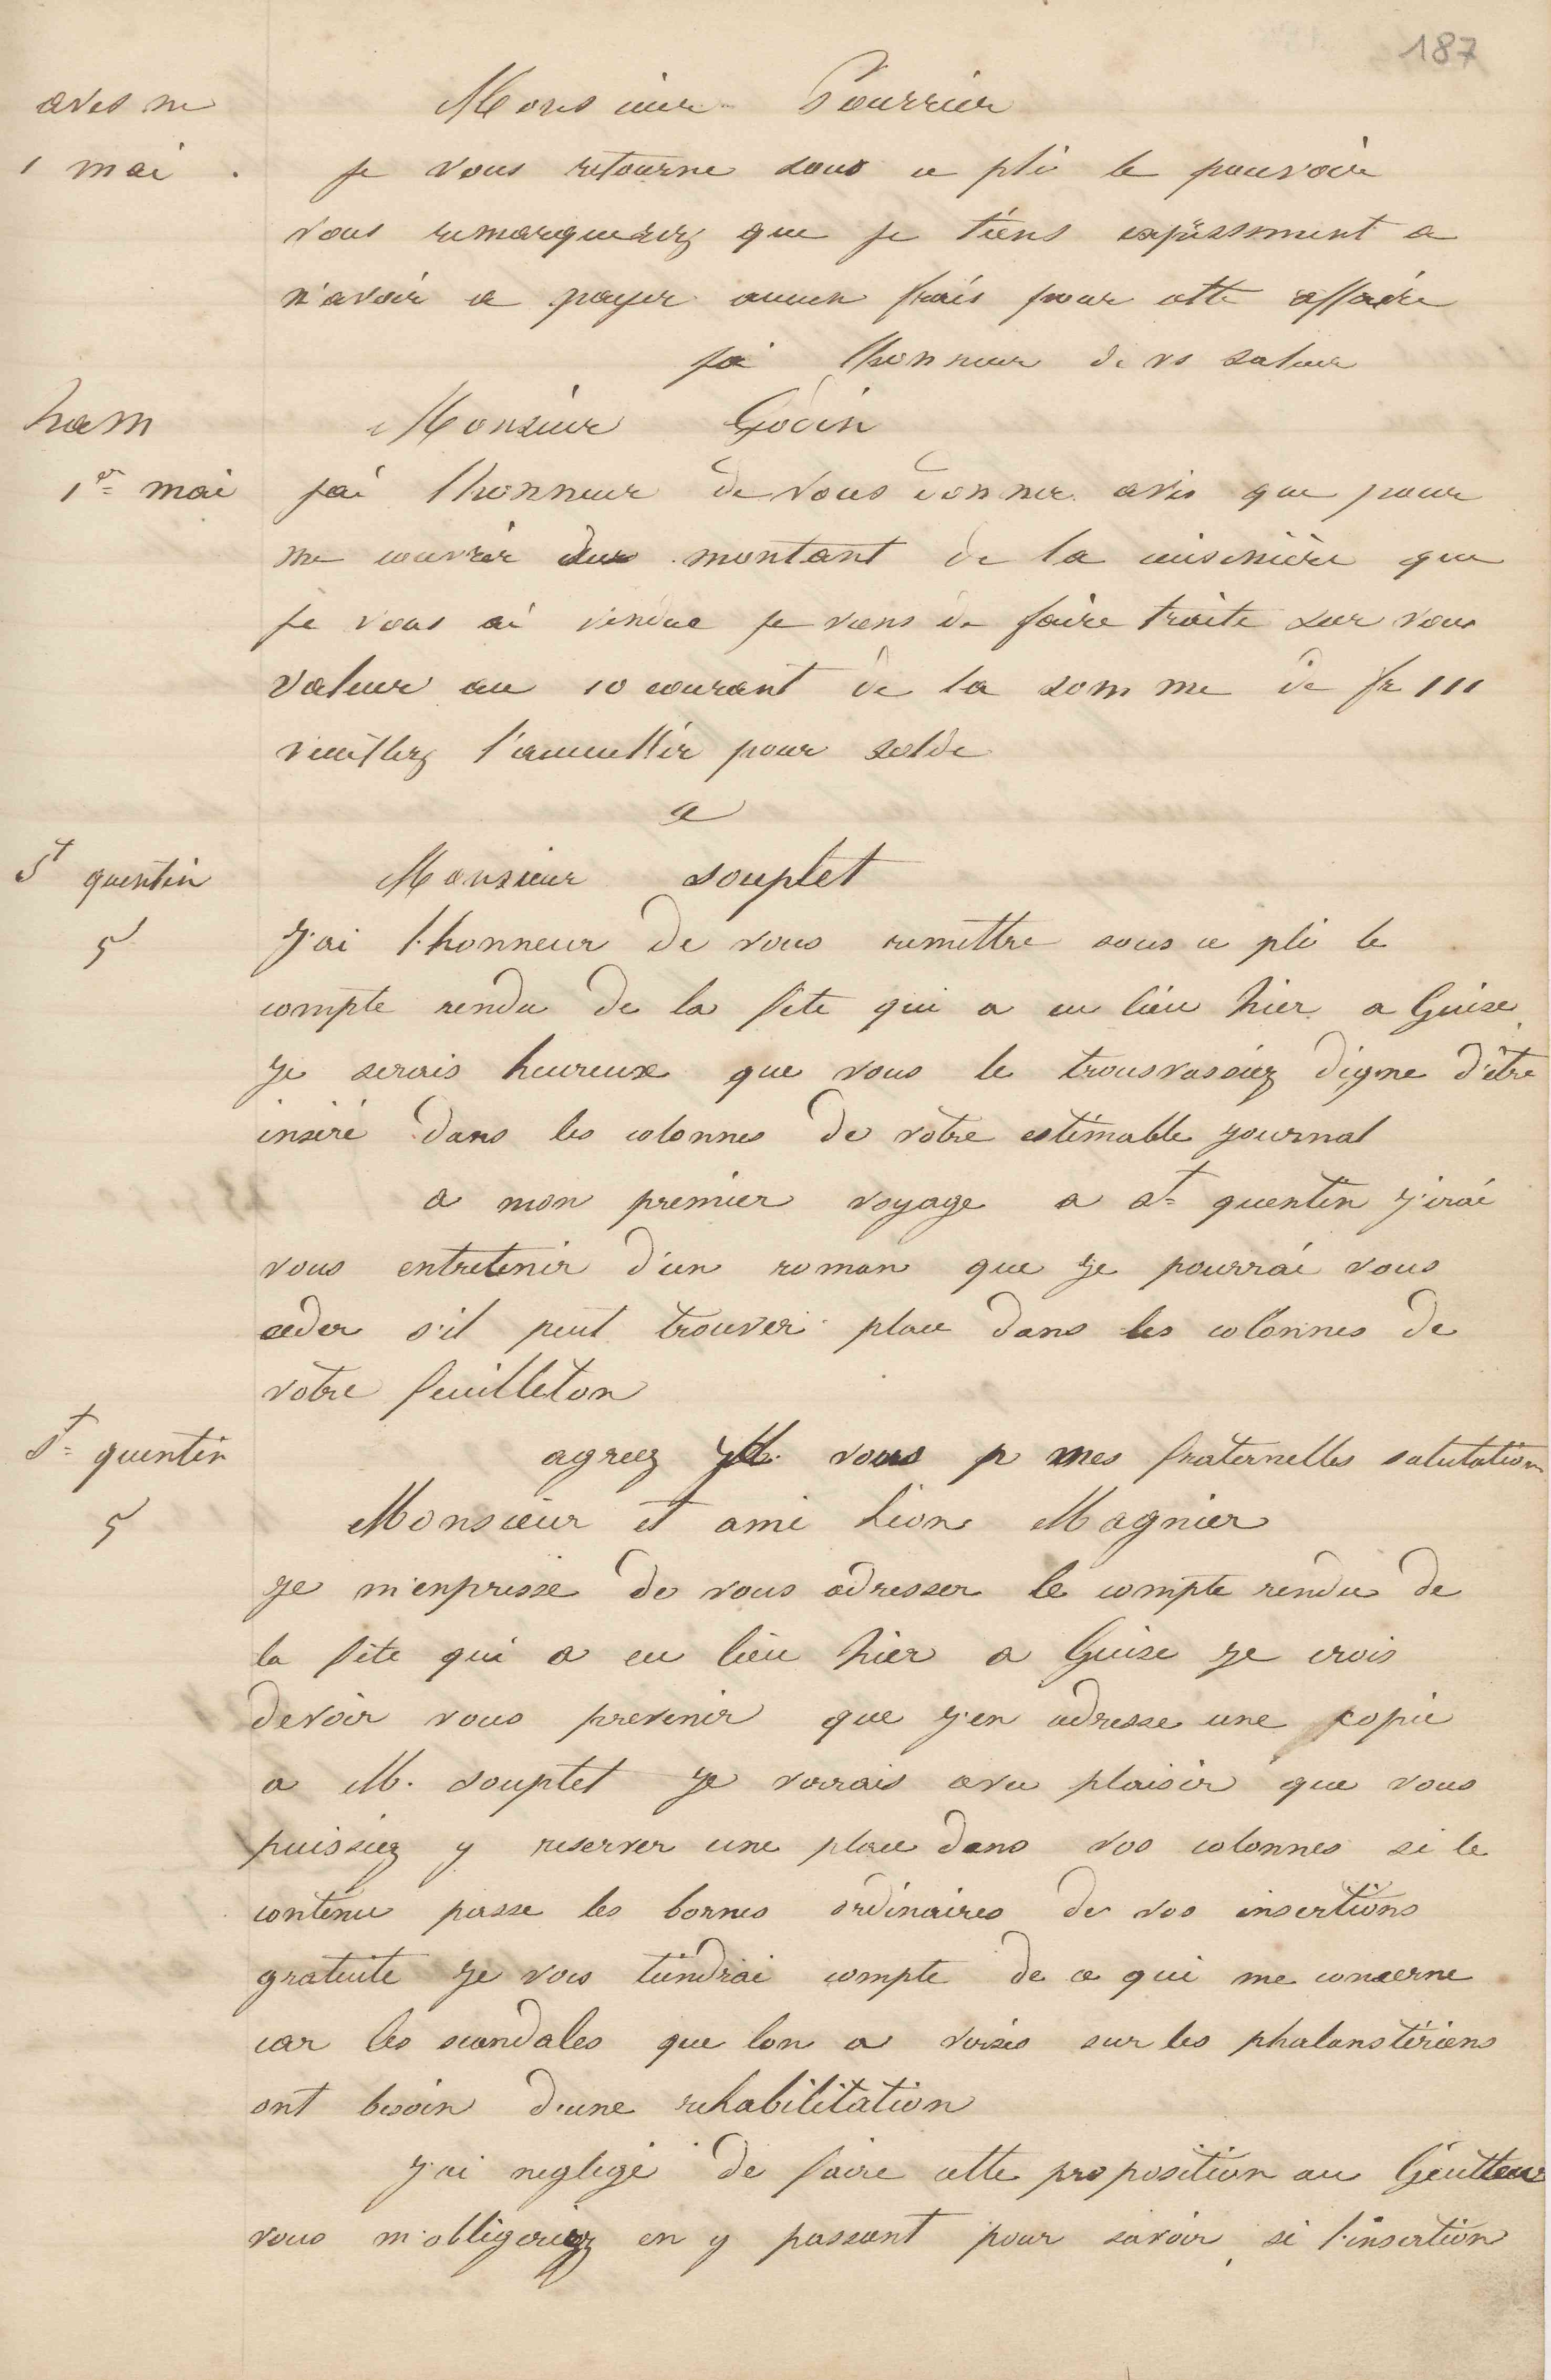 187
avesne
Monsieur Pourrier
1 mai.
je vous retourne sous ce pli le pouvoir
vous remarquerez que je tiens expressement a
n'avoir a payer aucun frais pour cette affaire
jai lhonneur de vs saluer
ham
Monsieur Godin
1er mai
jai lhonneur de vous donner avis que pour
me couvrir du montant de la cuisinière que
je vous ai vendue je viens de faire traite sur vous
valeur au 10 courant de la somme de fr 111
veuillez l'acceuillir pour solde
a
St quentin
Monsieur souplet
5
J'ai l'honneur de vous remettre sous ce pli le
compte rendu de la fete qui a eu lieu hier a Guise
je serais heureux que vous le trousvassiez digne d'être
inséré dans les colonnes de votre estimable journal
a mon premier voyage a St quentin j'irai
vous entretenir d'un roman que je pourrai vous
ceder s'il peut trouver place dans les colonnes de
votre feuilleton
St quentin
agreez M. vous p mes fraternelles salutations
5
Monsieur et ami Léon Magnier
je m'enpresse de vous adresser le compte rendu de
la fête qui a eu lieu hier a Guise je crois
devoir vous prevenir que j'en adresse une copie
a M. souplet je verrais avec plaisir que vous
puissiez y reserver une place dans vos colonnes si le
contenu passe les bornes ordinaires de vos insertions
gratuite je vous tiendrai compte de ce qui me concerne
car les scandales que lon a versés sur les phalanstériens
ont besoin d'une rehabilitation
j'ai negligé de faire cette proposition au
vous m'obligeriez en y passant pour savoir si l'insertion